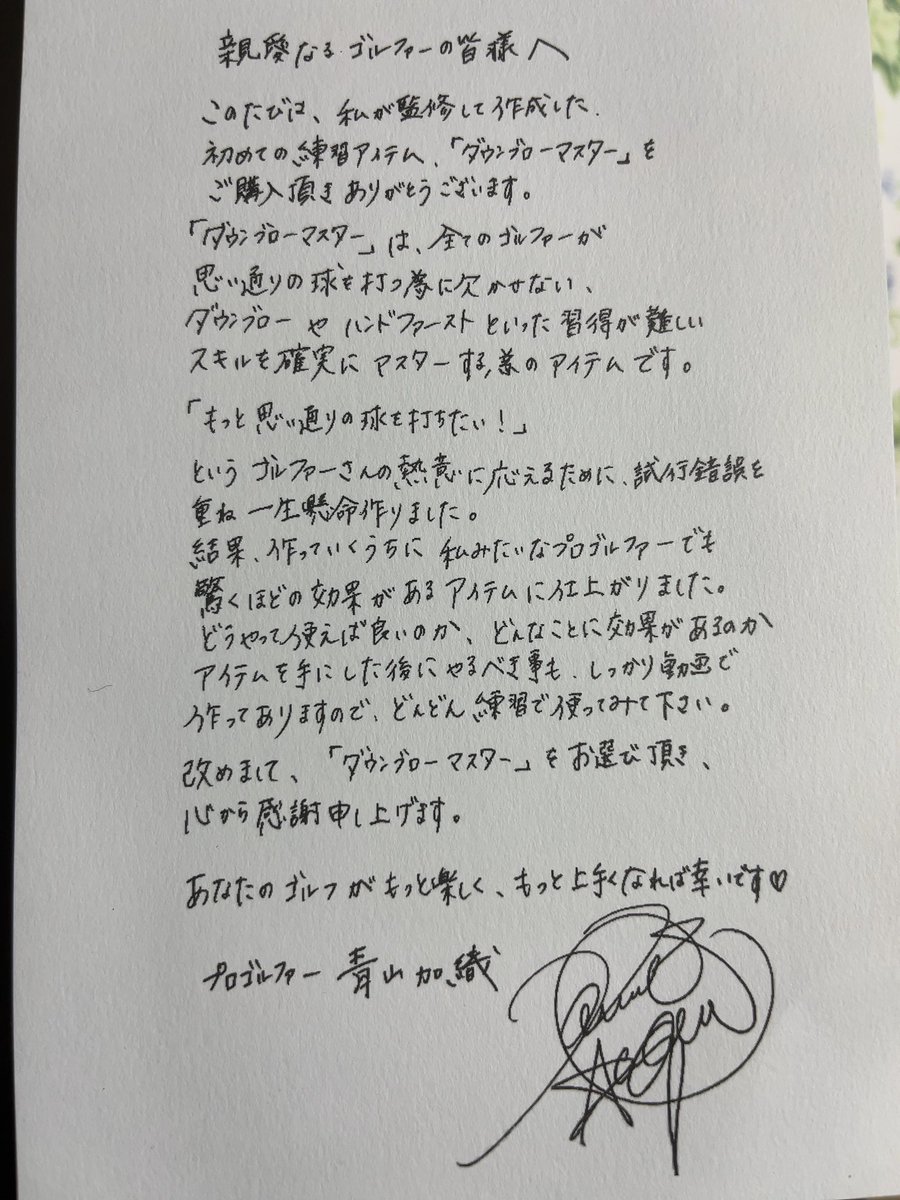 親愛なるゴルファーの皆様へ
このたびは、私が監修して作成した、
初めての練習アイテム、「ダウンブローマスター」を
ご購入頂きありがとうございます。
「ダウンブローマスター」は、全てのゴルファーが
思い通りの球を打つ為に欠かせない、
ダウンブローやハンドファーストといった習得が難しい
スキルを確実にマスターする為のアイテムです。
「もっと思い通りの球を打ちたい!」
というゴルファーさんの熱意に応えるために、試行錯誤を
重ね一生懸命作りました。
結果、作っていくうちに私みたいなプロゴルファーでも
驚くほどの効果があるアイテムに仕上がりました。
どうやって使えば良いのか、どんなことに効果があるのか
アイテムを手にした後にやるべき事も、しっかり動画で
作ってありますので、どんどん練習で使ってみて下さい。
改めまして、「ダウンブローマスター」をお選び頂き、
心から感謝申し上げます。
あなたのゴルフがもっと楽しく、もっと上手くなれば幸いです♡
プロゴルファー 青山加織